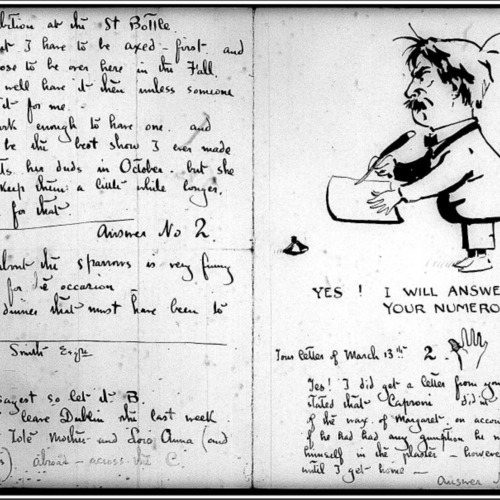 bition at the St Bottle.
I have to be axed - first and
ose to be over here in the Fall.
well have it then unless someone
it for me.
ark enough to have one. and
be the best show I ever made
ts her duds in October. but she
keep them a little while longer.
for that.
Answer No 2.
about the sparrows is very funny
for occasion
dinner that must have been to
Smith Esqr
sayest so let it B.
leave Dublin the last week
Tolé Mother and Loro Anna (and
abroad - across the C.
YES! I WILL ANSWE
YOUR NUMERO
Your letter of March 13th 2.
Yes! I did get a letter from yo
stated that Caproni did nt
of the wax of Margaret on accou
if he had had any gumption he w
himself in the plaster - howeve
until I get home -
Answer